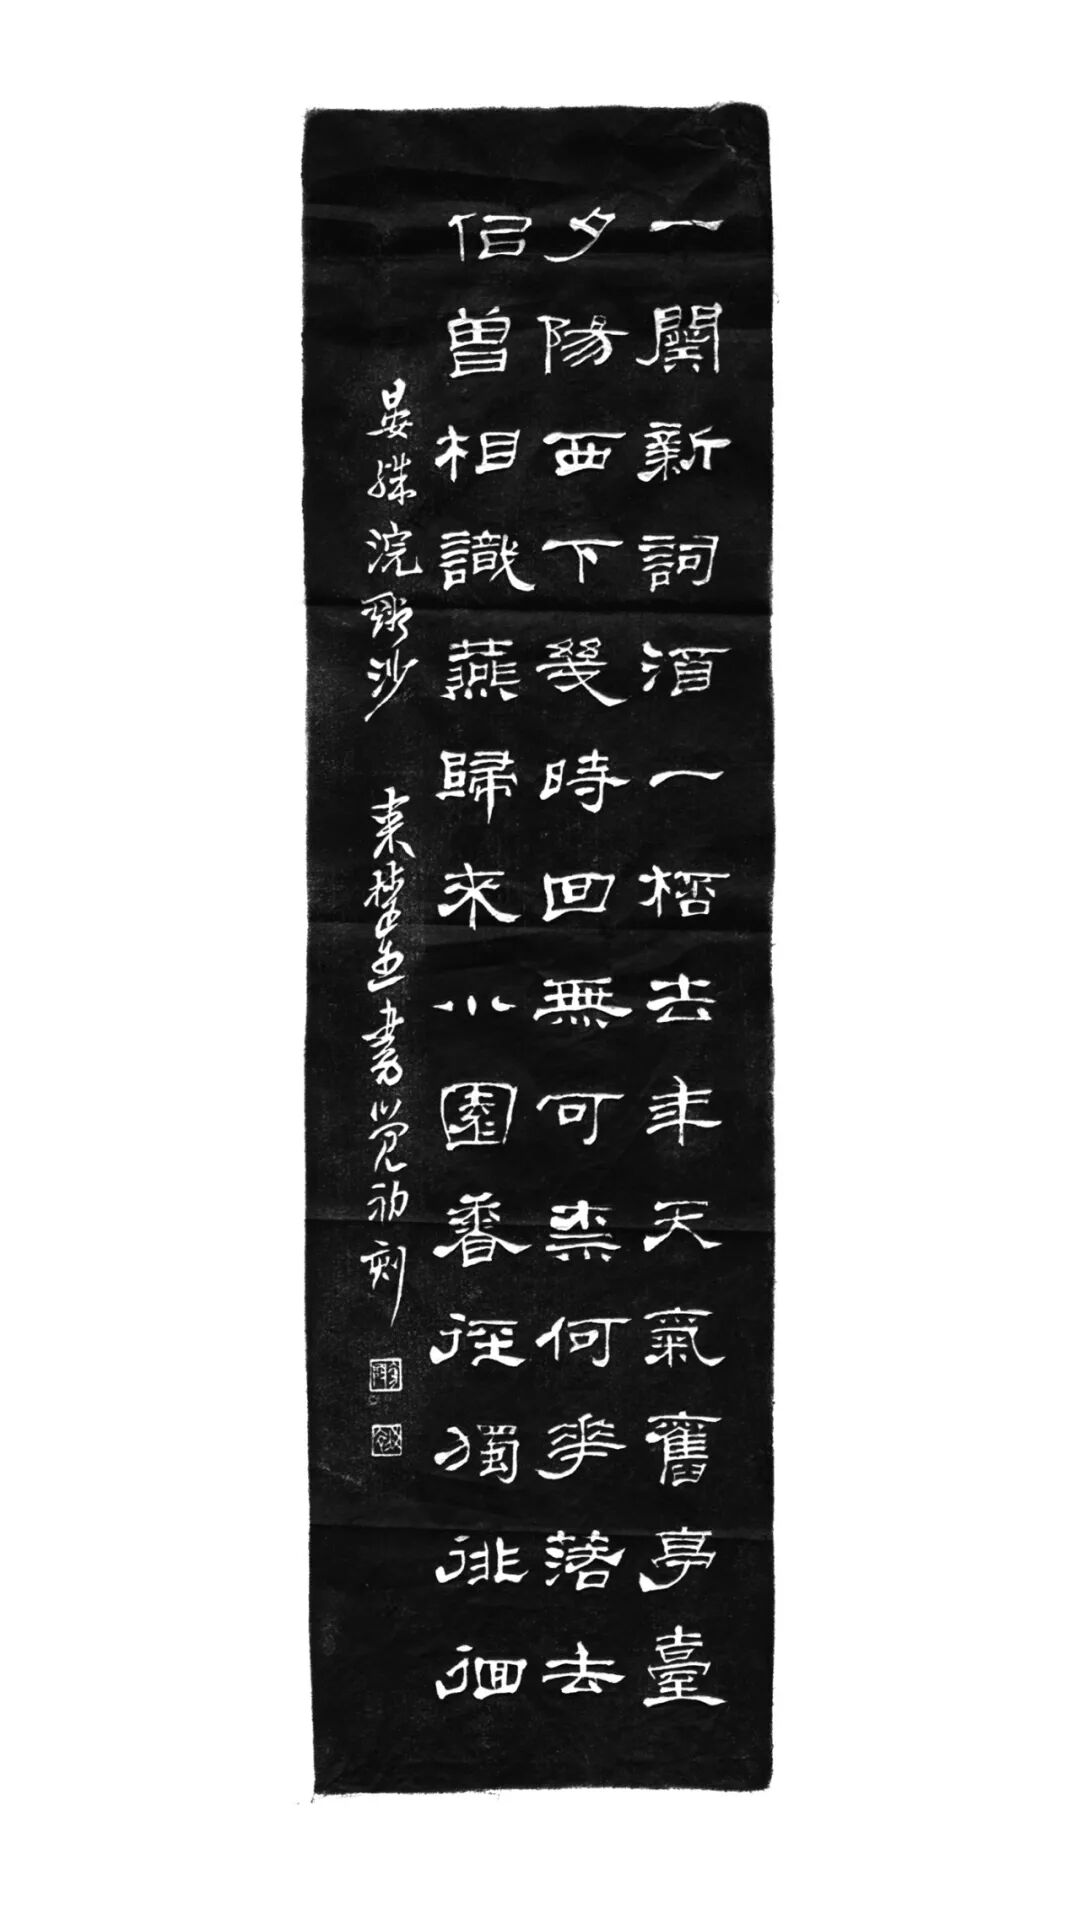 一闋新詞酒一桮去年天氣舊亭臺
夕陽西下幾時回無可柰何華落去
佀曾相識燕歸來小園香徑獨徘徊
晏殊浣谿沙 書 覺初刻